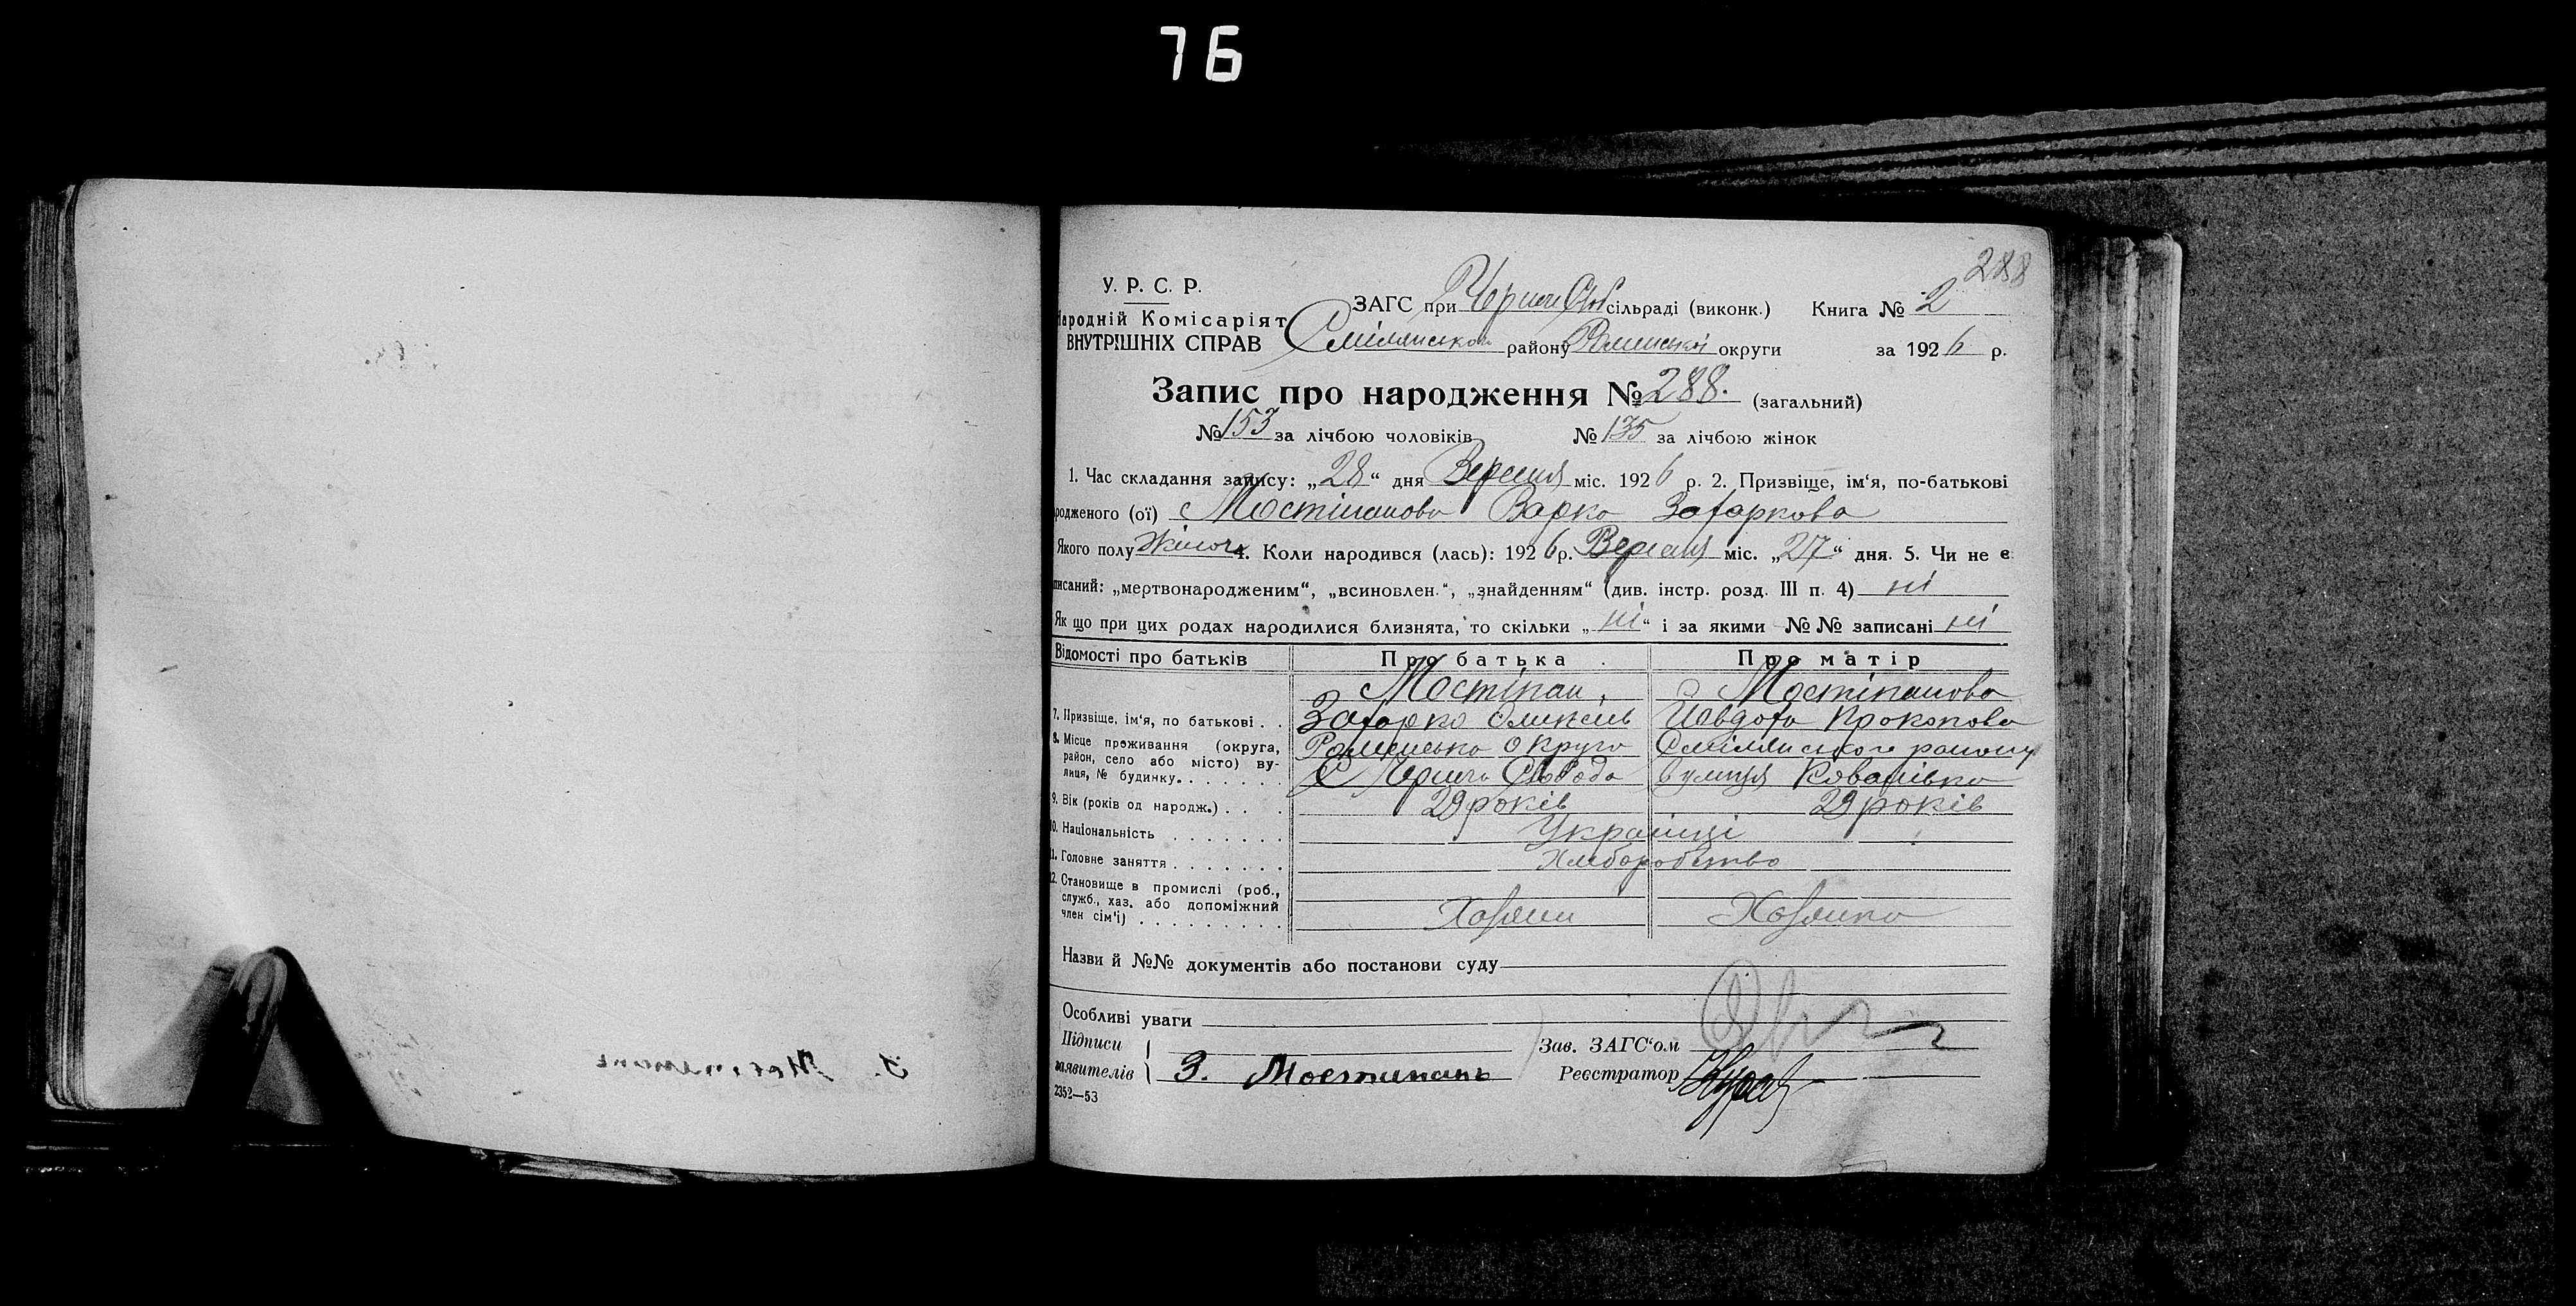 76
288
У. Р. С. Р.
Народній Комісаріят
ВНУТРІШНІХ СПРАВ
ЗАГС при Черне Слоб сільраді (виконк.) Книга № 2
Смілянського району Роменської округи за 1926 р.
Запис про народження № 288. (загальний)
№ 153 за лічбою чоловіків № 135 за лічбою жінок
1. Час складання запису: „28“ дня Вересня міс. 1926 р. 2. Призвіще, ім‘я, по-батькові
родженого (ої) Мостіпанова Варка Захаркова
Якого полу Жіноч 4. Коли народився (лась): 1926 р. Вересня міс. „27“ дня. 5. Чи не є
писаний: „мертвонародженим“, „всиновлен.“, „знайденням“ (див. інстр. розд. III п. 4) ні
Як що при цих родах народилися близнята, то скільки „ні“ і за якими №№ записані ні
Відомості про батьків Про батька Про матір
Мостіпан Мостіпанова
7. Призвіще, ім‘я, по батькові . . Захарко Йовдоха Прокопова
8. Місце проживання (округа, район, село або місто) вулиця, № будинку. Роменська округа Смілянського району
С Черне Слобода вулиця Ковалівка
9. Вік (років од народж.) . . . 29 років 29 років
10. Національність . . . . . . Українці
11. Головне заняття . . . . . . . Хлеборобство
12. Становище в промислі (роб., служб., хаз. або допоміжний член сім‘ї) . . . . . . . . . Хозяин Хозяика
Назви й №№ документів або постанови суду
Особливі уваги
Підписи Зав. ЗАГС‘ом
заявителів З. Мостипань Реєстратор
2352—53